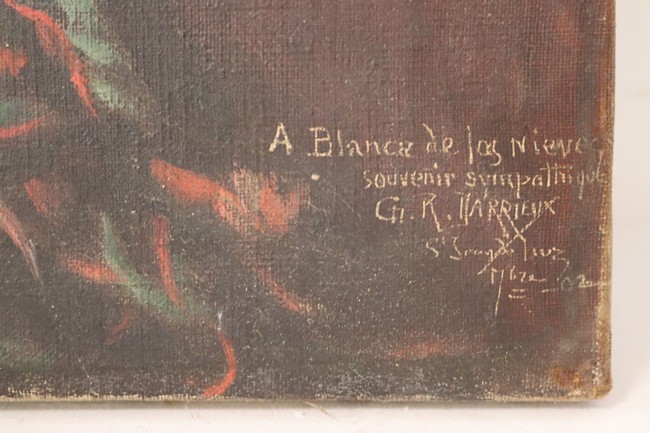 A Blanca de las Nieves
souvenir sympathique
G. R. DARRIEUX
St Jean de Luz